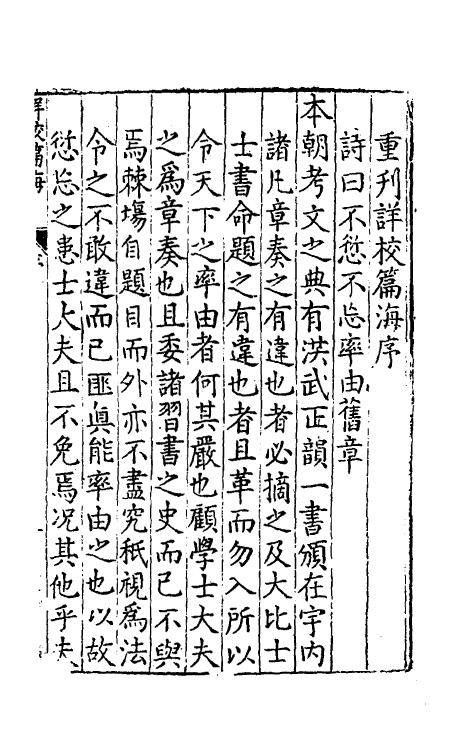 重刊詳校篇海序
詩曰不愆不忘率由舊章
本朝考文之典有洪武正韻一書頒在宇内
諸凡章奏之有違也者必摘之及大比士
士書命題之有違也者且革而勿入所以
令天下之率由者何其嚴也顧學士大夫
之爲章奏也且委諸習書之史而已不與
焉棘場自題目而外亦不盡究秖視爲法
令之不敢違而已匪眞能率由之也以故
愆忘之患士大夫且不免焉况其他乎夫
詳校篇海